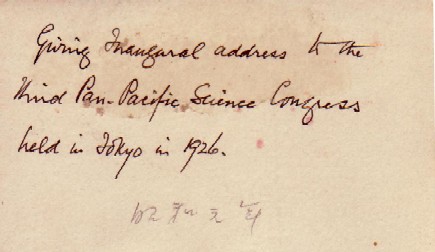 Giving Inaugural address to the
third Pan-Pacific Science Congress
held in Tokyo in 1926.
昭和元年